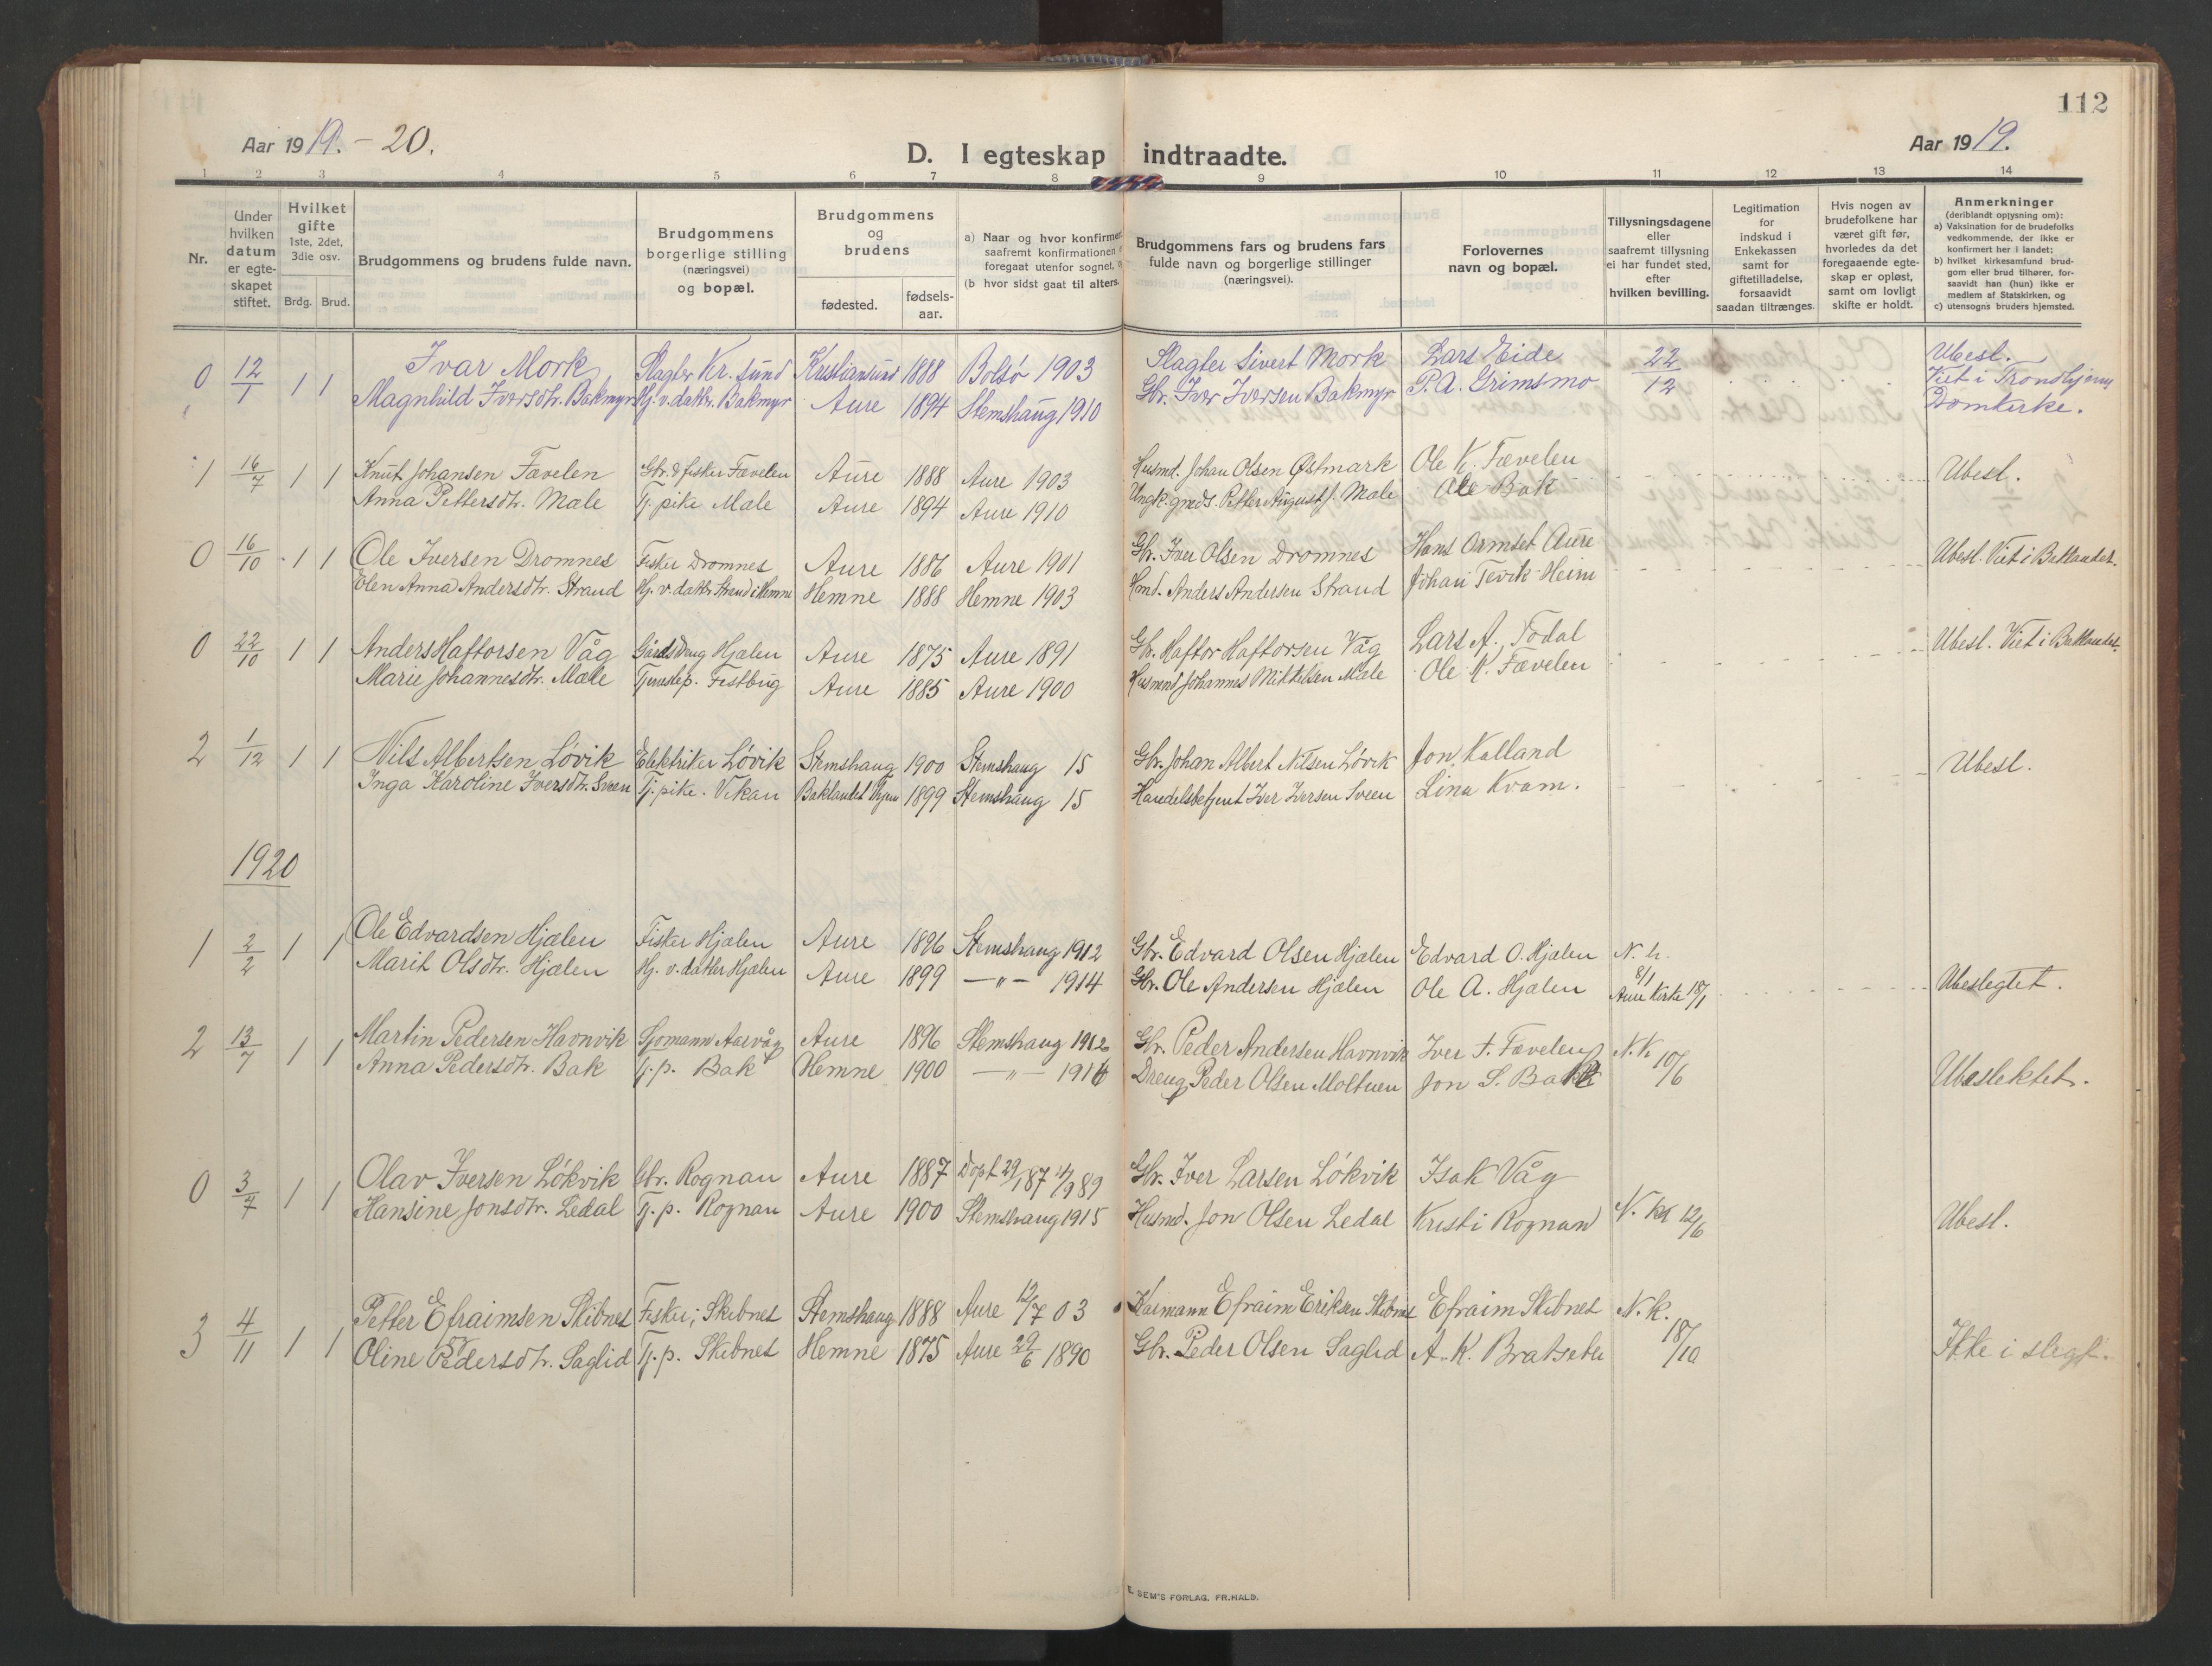 112
Aar 1919. – 20.
D. I egteskap indtraadte.
Aar 1919.
1 2 3 4 5 6 7 8 9 10 11 12 13 14
Nr.
Under hvilken datum er egteskapet stiftet.
Hvilket gifte 1ste, 2det, 3die osv.
Brdg. Brud.
Brudgommens og brudens fulde navn.
Brudgommens borgerlige stilling (næringsvei) og bopæl.
Brudgommens og brudens
fødested.
fødsels-aar.
a) Naar og hvor konfirmert
saafremt konfirmationen
foregaat utenfor sognet,
(b hvor sidst gaat til alters.
Brudgommens fars og brudens fars
fulde navn og borgerlige stillinger
(næringsvei).
Forlovernes
navn og bopæl.
Tillysningsdagene
eller
saafremt tillysning
ei har fundet sted,
efter
hvilken bevilling.
Legitimation
for
indskud i
Enkekassen
samt for
giftetilladelse,
forsaavidt
saadan tiltrænges.
Hvis nogen av
brudefolkene har
været gift før,
hvorledes da det
foregaaende egte-
skap er opløst,
samt om lovligt
skifte er holdt.
Anmerkninger
(deriblandt oplysning om):
a) Vaksination for de brudefolks
vedkommende, der ikke er
konfirmert her i landet;
b) hvilket kirkesamfund brud-
gom eller brud tilhører, for-
saavidt han (hun) ikke er
medlem af Statskirken, og
c) utensogns bruders hjemsted.
0 12/1 1 1 Ivar Mork Slagter Kr. sund Kristiansund 1888 Bolsø 1903 Slagter Sivert Mork Lars Eide 22/12 Ubesl.
Magnhild Iversdtr. Bakmyr Hj. v. datter. Bakmyr Aure 1894 Stemshaug 1910 Gbr. Iver Iversen Bakmyr P. A. Grimsmo Viet i Trondhjems
Domkirke.
1 16/7 1 1 Knut Johansen Fævelen Gbr. & fisker Fævelen Aure 1888 Aure 1903 Husmd. Johan Olsen Østmark Ole K. Fævelen Ubesl.
Anna Pettersdtr. Mæle Tj. pike Mæle Aure 1894 Aure 1910 Petter August Mæle Ole Bak
0 16/10 1 1 Ole Iversen Dromnes Fisker Dromnes Aure 1886 Aure 1901 Gbr. Iver Olsen Dromnes Hans Ormset Aure Ubesl. Viet i Baklandet.
Elen Anna Andersdtr. Strand Hj. v. datter Strand i Hemne Hemne 1888 Hemne 1903 Hmd. Anders Andersen Strand Johan Tevik Heim
0 22/10 1 1 Anders Haftorsen Våg Gårdsdreng Hjælen Aure 1875 Aure 1891 Gbr. Haftor Haftorsen Våg Lars A. Todal Ubesl. Viet i Baklandet.
Marie Johannesdtr. Mæle Tjenestep. Festbug Aure 1885 Aure 1900 Husmend Johannes Mikkelsen Mæle Ole K. Fævelen
2 1/12 1 1 Nils Albertsen Løvik Elektriker Løvik Stemshaug 1900 Stemshaug 15 Gbr. Johan Albert Nilsen Løvik Jon Kalland Ubesl.
Inga Karoline Iversdtr. Sveen Tj. pike. Vikan Baklandet 1899 Stemshaug 15 Handelsbetjent Iver Iversen Sveen Lina Kvam.
1920
1 2/2 1 1 Ole Edvardsen Hjælen Fisker Hjælen Aure 1896 Stemshaug 1912 Gbr. Edvard Olsen Hjælen Edvard O. Hjælen N. k. 8/1
Marit Olsdtr. Hjælen Hj. v. datter Hjælen Aure 1899 —"— 1914 Gbr. Ole Andersen Hjælen Ole A. Hjælen Aure Kirke 18/1 Ubeslegtet.
2 13/7 1 1 Martin Pedersen Havnvik Sjømann Aarvåg Aure 1896 Stemshaug 1912 Gbr. Peder Andersen Havnvik Iver J. Fævelen N. K. 10/6
Anna Pedersdtr. Bak Tj. p. Bak Hemne 1900 —"— 1916 Dreng Peder Olsen Moltuen Jon S. Bakk Ubeslektet.
0 3/7 1 1 Olav Iversen Løkvik Gbr. Rognan Aure 1887 Døpt 29/1 87 Gbr. Iver Larsen Løkvik Isak Våg
Hansine Jonsdtr. Ledal Tj. p. Rognan Aure 1900 Stemshaug 1915 Husmd. Jon Olsen Ledal Kristi Rognan N. K. 12/6 Ubesl.
3 4/11 1 1 Petter Efraimsen Skibnes Fisker, Skibnes Stemshaug 1888 Aure 12/7 03 Kaarmann Efraim Eriksen Skibnes Efraim Skibnes N. k. 18/10
Oline Pedersdtr. Saglid Tj. p. Skibnes Hemne 1875 Aure 29/6 1890 Gbr. Peder Olsen Saglid A. K. Bratseter Ikke i slegt.
E. SEM'S FORLAG, FR.HALD.